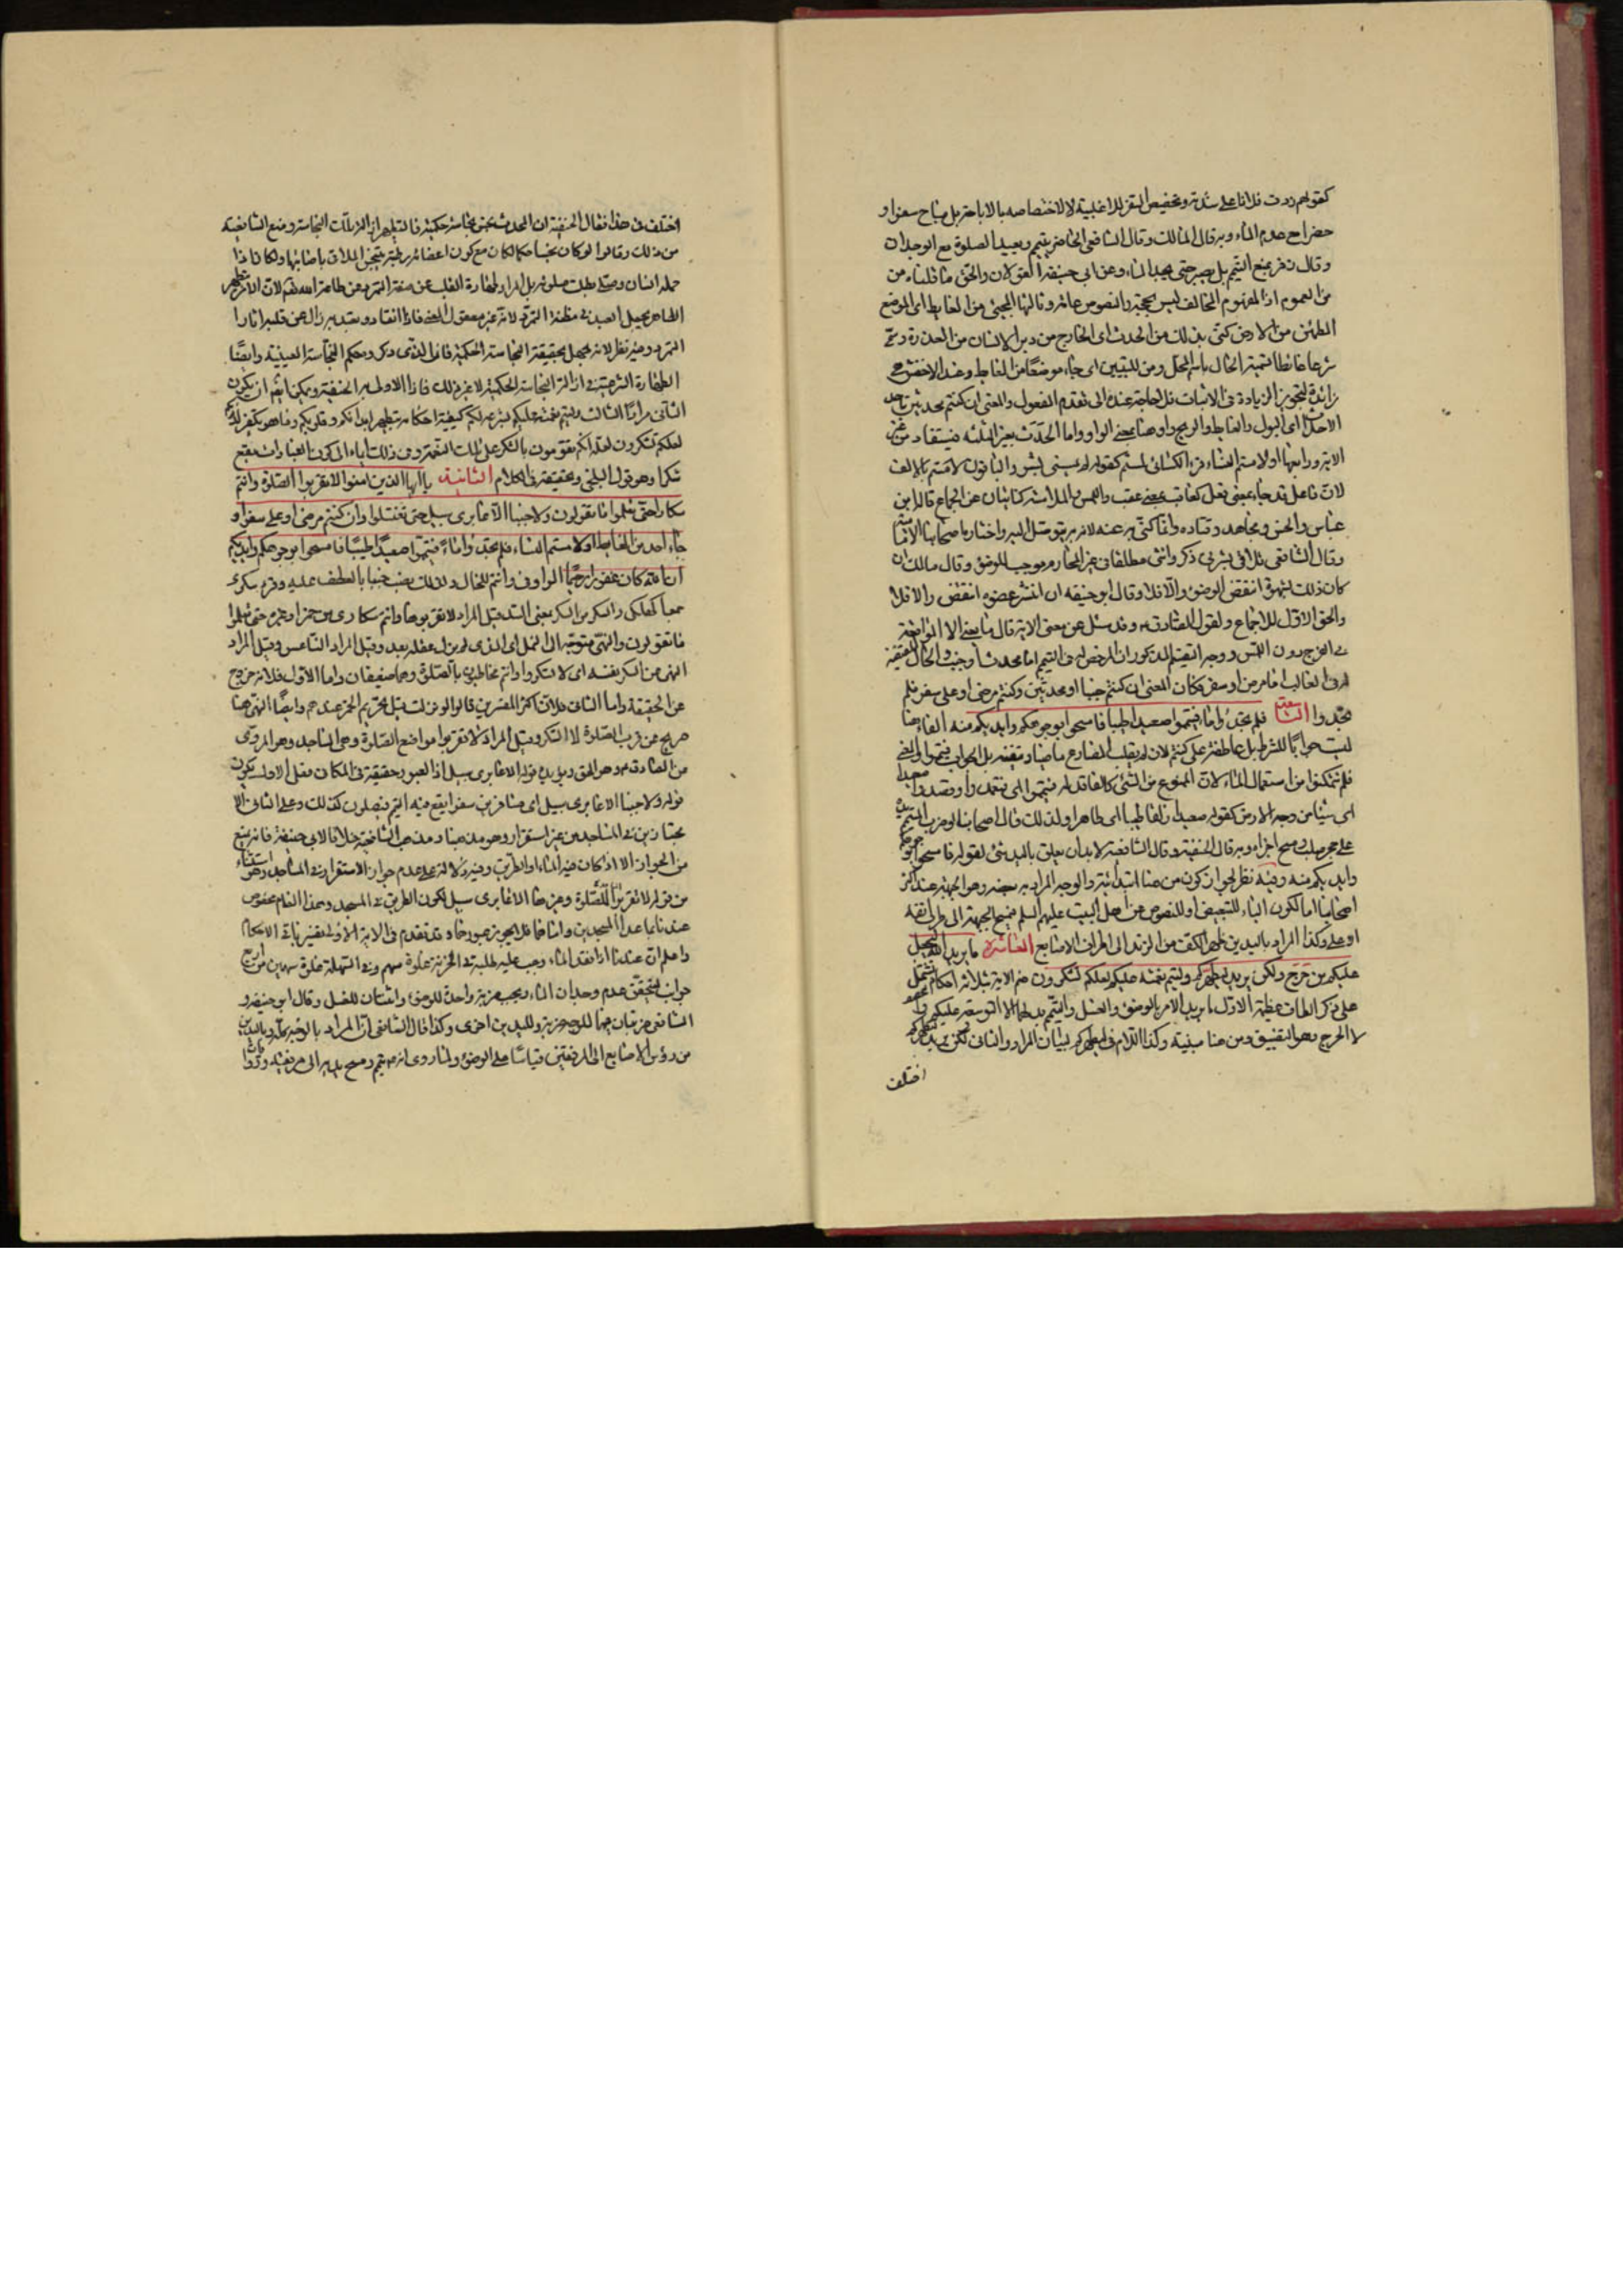 كقولهم زرت فلانا على شربه وتخصيص السفر للاغلبية لا لاختصاصه بالاباحة بل يباح سفرا و
حضرا مع عدم الماء وبه قال مالك وقال الشافعى الحاضر يتيمم ويعيد الصلوة مع الوجدان
وقال زفر يمنع التيمم بل يصبر حتى يجد الماء وعن ابى حنيفة القولان والحق ما قلناه من
من العموم اذ المفهوم المخالف ليس بحجة والنصوص عامة وثالثها المجيئ من الغايط اى الموضع
المطمئن من الارض كنى بذلك من الحدث اى الخارج من دبر الانسان من العذرة وسمى
الحال باسم المحل ومن للتبيين اى جاء موضعا من الغايط وعند الاخفش هى
زائدة لتجويز الزيادة فى الاثبات فلا حاجة عنده الى تقدم المفعول والمعنى ان كنتم محدثين
اى البول والغايط والريح واو هنا بمعنى الواو واما الحدث بغير الثلثة فيستفاد من غير
الاية ورابعها او لامستم النساء قرء الكسائى لمستم كقوله لم يمسسنى بشر والباقون لامستم بالالف
لان فاعل قد جاء بمعنى فعل كعاقب بمعنى عقب واللمس والملامسة كنايتان عن الجماع قاله ابن
عباس والحسن ومجاهد وقتاده وانما كنى به عنه لانه به يتوصل اليه واختاره اصحابنا الامامية
وقال الشافعى تلاقى بشرتى ذكر وانثى مطلقا فى غير المحارم موجب للوضوء وقال مالك ان
كان ذلك لشهوة انتقض الوضوء والا فلا وقال ابو حنيفه ان انتشر عضوه انتقض والا فلا
والحق الاول للاجماع ولقول الصادق وقد سئل عن معنى الاية قال ما يعنى الا المواقعة
فى الفرج دون اللمس ووجه التقسيم المذكور ان المرخص له فى التيمم اما محدث او جنب والحال المقتضية
له فى الغالب اما مرض او سفر فكان المعنى ان كنتم جنبا او محدثين وكنتم مرضى او على سفر فلم
تجدوا التاسعة فلم تجدوا ماء فتيمموا صعيدا طيبا فامسحوا بوجوهكم وايديكم منه الفاء هنا
ليست جوابا للشرط بل عاطفة على كنتم لان لم يقلب المضارع ماضيا وتنفيه بل الجواب فتيمموا والمعنى
فلم تتمكنوا من استعمال الماء لان الممنوع من الشئ كالفاقد له فتيمموا اى تعمدوا واقصدوا صعيدا
اى شيئا من وجه الارض كقوله صعيدا زلقا طيبا اى طاهرا ولذلك قال اصحابنا لو ضرب المتيمم يده
على حجر صلب ومسح اجزاه وبه قال الحنفية وقال الشافعية لابد ان يعلق باليد شئ لقوله فامسحوا بوجوهكم
وايديكم منه وفيه نظر لجواز كون من هنا ابتدائية والوجه المراد به بعضه وهو الجبهة عند اكثر
اصحابنا اما لكون الباء للتبعيض او للنصوص عن اهل البيت عليهم السلم فيمسح الجبهة الى طرف انفه
الاعلى وكذا المراد باليدين ظهر الكف من الزند الى اطراف الاصابع العاشرة ما يريد الله ليجعل
عليكم من حرج ولكن يريد ليطهركم وليتم نعمته عليكم لعلكم تشكرون ختم الاية بثلاثة احكام تشتمل
على ذكر الطاف عظيمة الاول ما يريد الامر بالوضوء والغسل والتيمم بدلهما الا التوسعة عليكم
لا الحرج وهو التضييق ومن هنا مبينة وكذا اللام فى ليطهركم لبيان المراد والثانى لكن يريد ليطهركم
اختلف
اختلف فى هذا فقال الحنفية ان المحدث نجس نجاسة حكمية فالتطهير ازالة تلك النجاسة ومنع الشافعية
من ذلك وقالوا لو كان نجسا حكما لكان مع كون اعضائه رطبة ينجس الملاقى باصابتها ولكان اذا
حمله انسان وصلى بطلت صلوته بل المراد طهارة القلب عن صفة التمرد عن طاعة الله تعالى لان الامر بتطهير
الطاهر يجعل العبد فى مظنة التمرد لانه غير معقول المعنى فاذا انقاد وتعبد به زال عن قلبه اثار
التمرد وفيه نظر لانه جهل بحقيقة النجاسة الحكمية فان الذى ذكروه حكم النجاسة العينية وايضا
الطهارة الشرعية فى ازالة النجاسة الحكمية لا غير ذلك فاذا الاولى الحنفية ويمكن ايضا ان يكون
الثانى مرادا الثالث وليتم نعمته عليكم بشرعه لكم كيفية احكامه تطهير ابدانكم وقلوبكم وما هو تكفير لذنوبكم
لعلكم تشكرون لعلكم تقومون بالشكر على تلك النعمة وفى ذلك ايماء الى كون العبادات تقع
شكرا وهو قول البلخى وتحقيقه فى الكلام الثانية يا ايها الذين امنوا لا تقربوا الصلوة وانتم
سكارى حتى تعلموا ما تقولون ولا جنبا الا عابرى سبيل حتى تغتسلوا وان كنتم مرضى او على سفر او
جاء احد من الغايط او لامستم النساء فلم تجدوا ماء فتيمموا صعيدا طيبا فامسحوا بوجوهكم وايديكم
ان الله كان عفوا رحيما الواو فى وانتم للحال ولذلك نصب جنبا بالعطف عليه وقرء سكرى
جمعا كهلكى والسكر من السكر بمعنى السد قيل المراد لا تقربوها وانتم سكارى من خمر او غيره حتى تعلموا
ما تقولون والنهى متوجه الى الثمل اى الذى لم يزل عقله بعد وقيل المراد الناعس وقيل المراد
النهى عن السكر نفسه اى لا تسكروا وانتم مخاطبون بالصلوة وهما ضعيفان واما الاول فلانه خروج
عن الحقيقة واما الثانى فلان اكثر المفسرين قالوا لو نزلت قبل تحريم الخمر وايضا النهى هنا
صريح عن قرب الصلوة لا السكر وقيل المراد لا تقربوا مواضع الصلوة وهى المساجد وهو المروى
عن الصادق وهو الحق ويؤيده قوله الا عابرى سبيل اذ العبور حقيقة فى المكان فعلى الاول يكون
قوله ولا جنبا الا عابرى سبيل اى مسافرين سفرا يقع فيه التيمم فتصلون كذلك وعلى الثانى الا
مجتازين فى المساجد من غير استقرار وهو مذهبنا ومذهب الشافعية خلافا لابى حنيفة فانه منع
من الجواز الا اذا كان فيه الماء او الطريق وفيه دلالة على عدم جواز الاستقرار فى المساجد
من قوله لا تقربوا الصلوة وعن هنا الا عابرى سبيل لكون الطريق فى المسجد وهذا العام مخصوص
عندنا بما عدا المسجدين واما هما فلا يجوز عبورهما وقد تقدم فى الاية الاولى تفسير باقى الاحكام
واعلم ان عندنا اذا فقد الماء وجب عليه طلبه فى الحزنة غلوة سهم وفى السهلة غلوة سهمين من اربع
جوانب ليتحقق عدم وجدان الماء ويجب ضربة واحدة للوضوء واثنتان للغسل وقال ابو حنيفة و
الشافعى ضربتان فيهما للوجه ضربة ولليدين اخرى وكذا قال الشافعى ان المراد بالوجه كله وباليدين
من رؤس الاصابع الى المرفقين قياسا على الوضوء ولما روى انه تيمم ومسح يديه الى مرفقيه